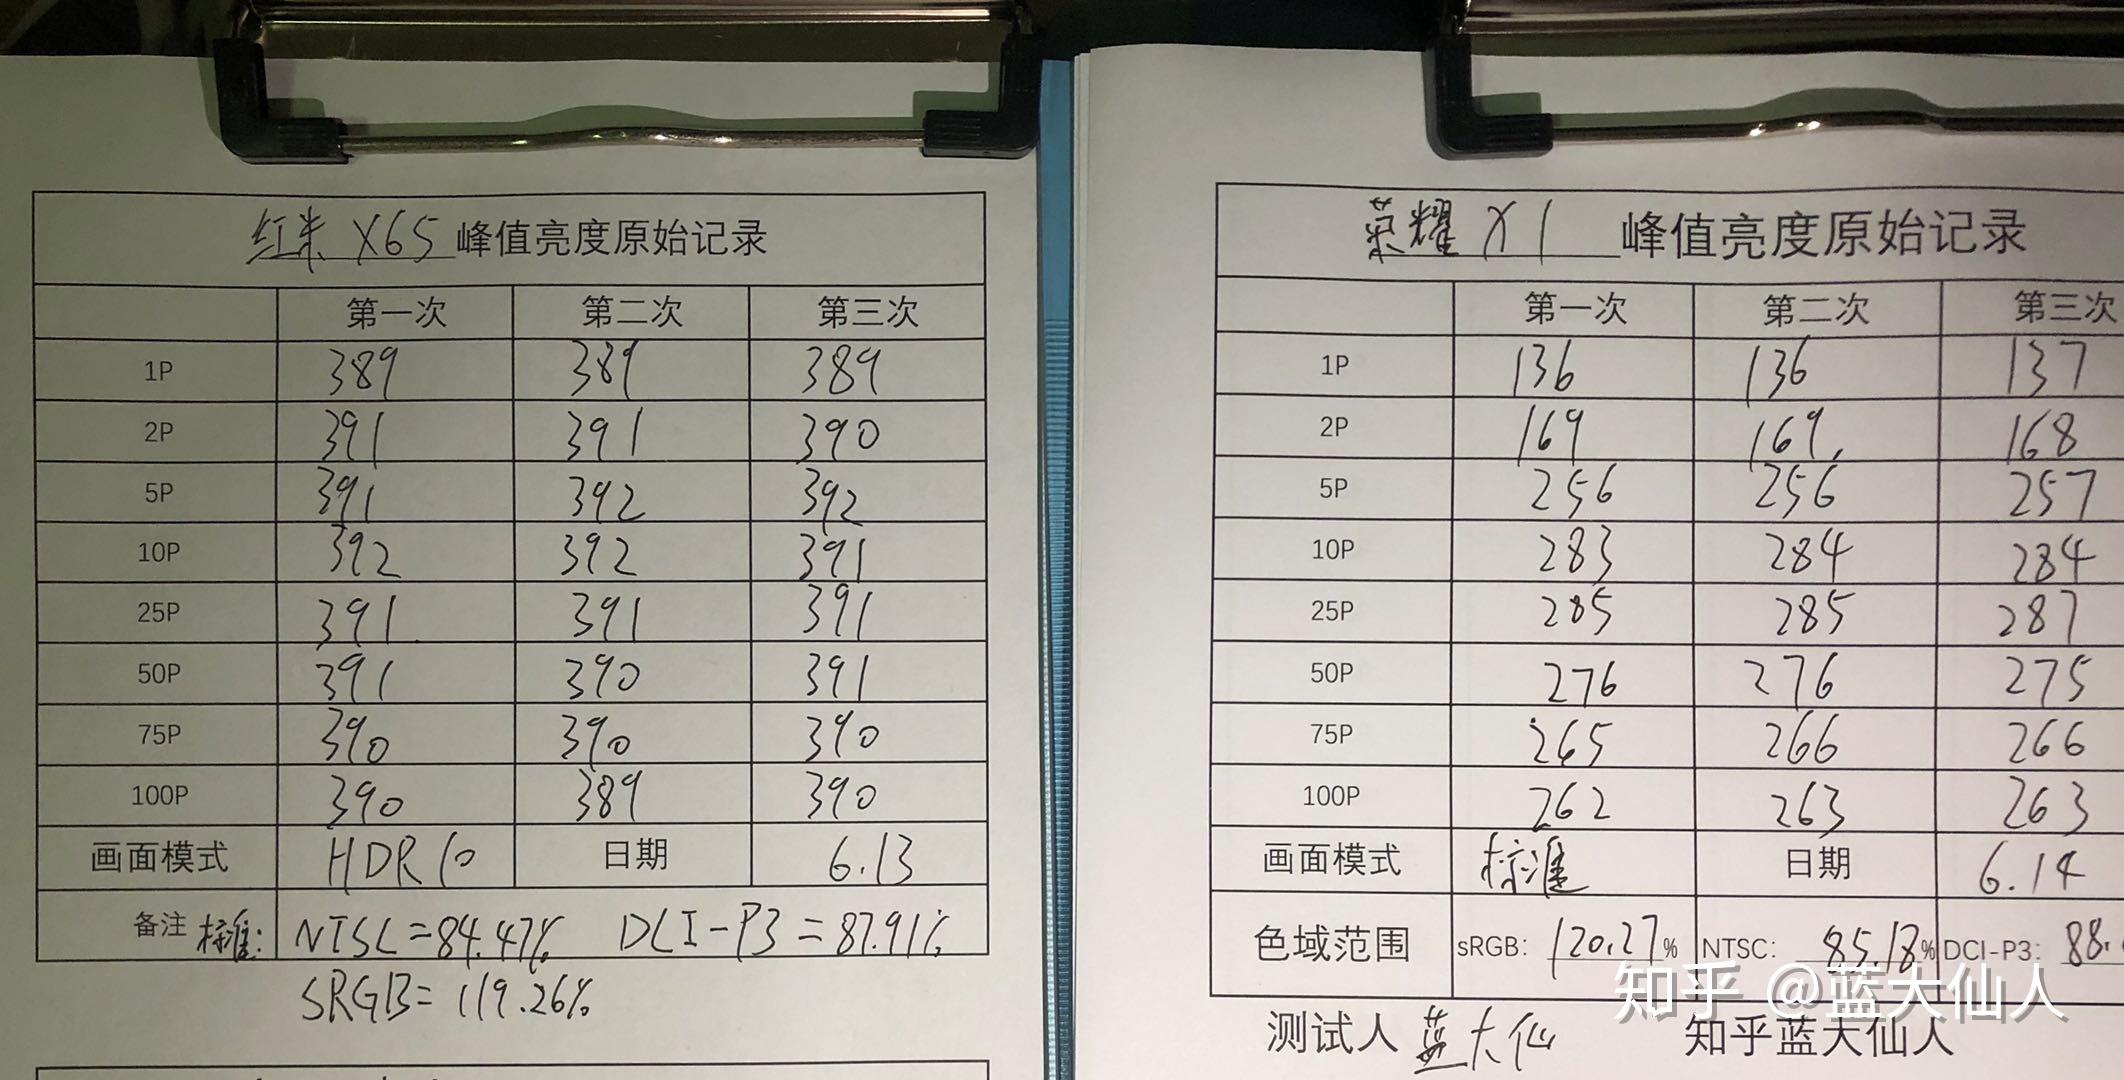 红米 X65 峰值亮度原始记录
第一次 第二次 第三次
1P 389 389 389
2P 391 391 390
5P 391 392 392
10P 392 392 391
25P 391 391 391
50P 391 390 391
75P 390 390 390
100P 390 389 390
画面模式 HDR10 日期 6.13
备注 标准: NTSC=84.47% DCI-P3=87.91%
SRGB=119.26%
荣耀 X1 峰值亮度原始记录
第一次 第二次 第三次
1P 136 136 137
2P 169 169 168
5P 256 256 257
10P 283 284 284
25P 285 285 287
50P 276 276 275
75P 265 266 266
100P 262 263 263
画面模式 标准 日期 6.14
色域范围 sRGB: 120.27% NTSC: 85.18% DCI-P3: 88.
知乎 @蓝大仙人
测试人 蓝大仙 知乎蓝大仙人